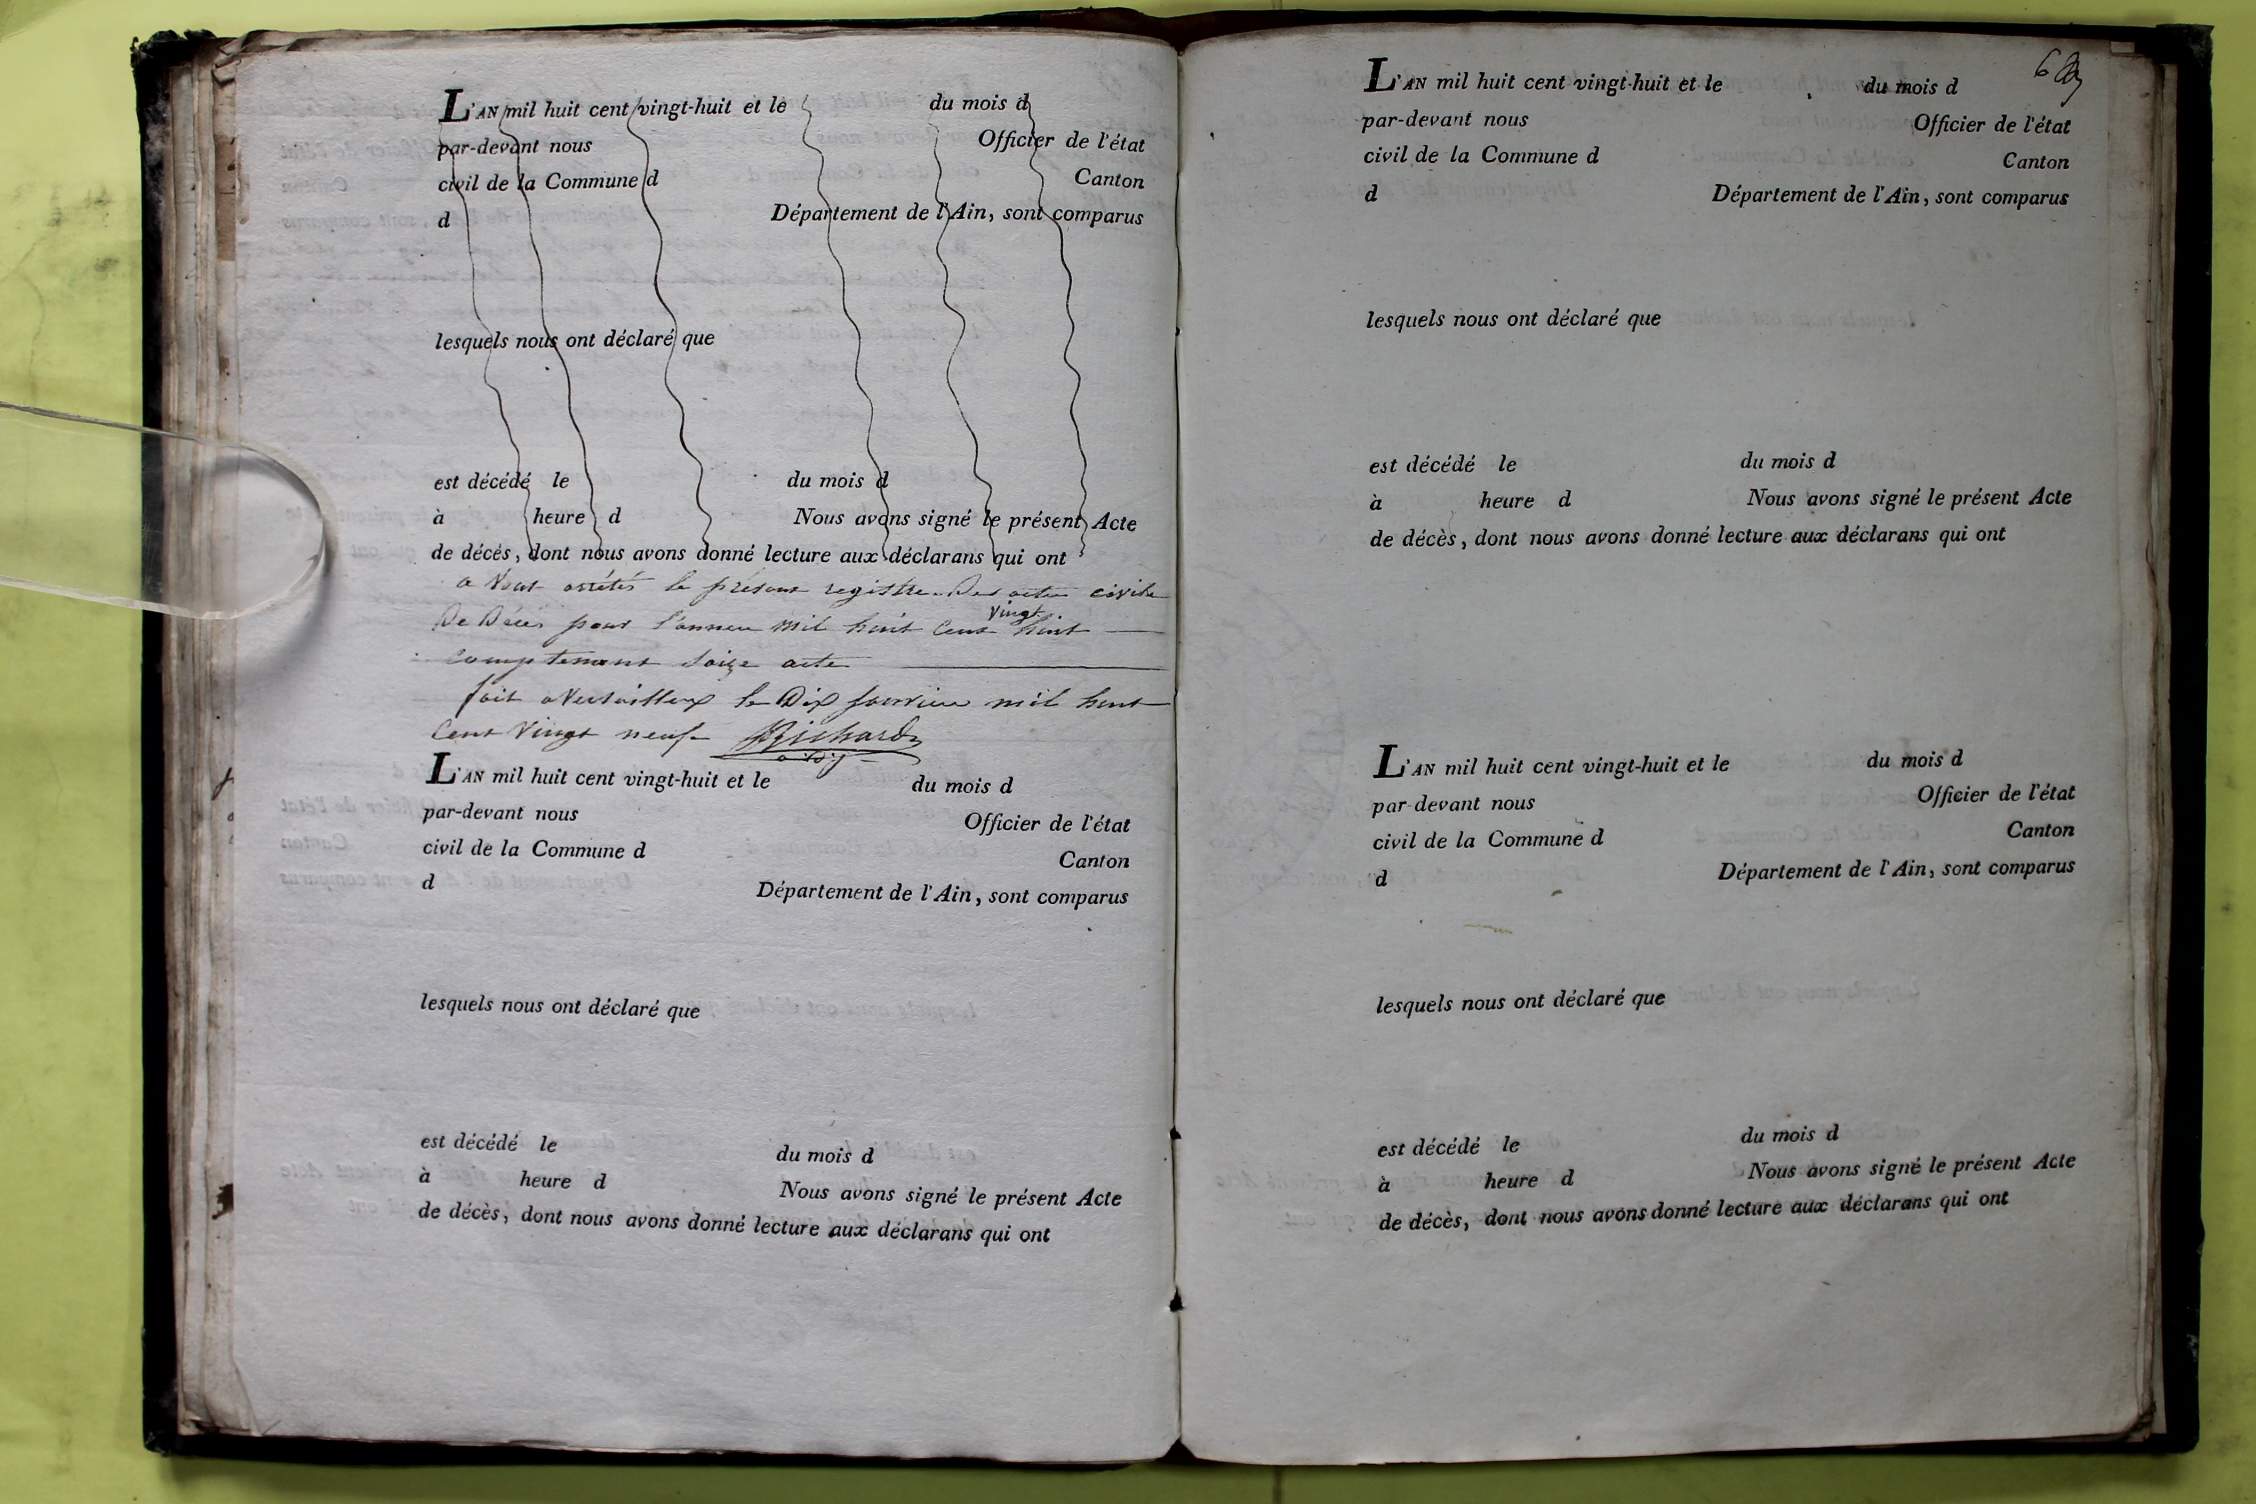 L'AN mil huit cent vingt-huit et le du mois d
par-devant nous Officier de l'état
civil de la Commune d Canton
d Département de l'Ain, sont comparus
lesquels nous ont déclaré que
est décédé le du mois d
à heure d Nous avons signé le présent Acte
de décès, dont nous avons donné lecture aux déclarans qui ont
a Nous arrétés le présent registre Des actes civile
De Décés pour l'annee mil huit Cent vingt huit
comptenant Saize acte
fait a Versailleux le Dix Janvier mil huit
Cent Vingt neuf Richard
L'AN mil huit cent vingt-huit et le du mois d
par-devant nous Officier de l'état
civil de la Commune d Canton
d Département de l'Ain, sont comparus
lesquels nous ont déclaré que
est décédé le du mois d
à heure d Nous avons signé le présent Acte
de décès, dont nous avons donné lecture aux déclarans qui ont
6
L'AN mil huit cent vingt-huit et le du mois d
par-devant nous Officier de l'état
civil de la Commune d Canton
d Département de l'Ain, sont comparus
lesquels nous ont déclaré que
est décédé le du mois d
à heure d Nous avons signé le présent Acte
de décès, dont nous avons donné lecture aux déclarans qui ont
L'AN mil huit cent vingt-huit et le du mois d
par-devant nous Officier de l'état
civil de la Commune d Canton
d Département de l'Ain, sont comparus
lesquels nous ont déclaré que
est décédé le du mois d
à heure d Nous avons signé le présent Acte
de décès, dont nous avons donné lecture aux déclarans qui ont